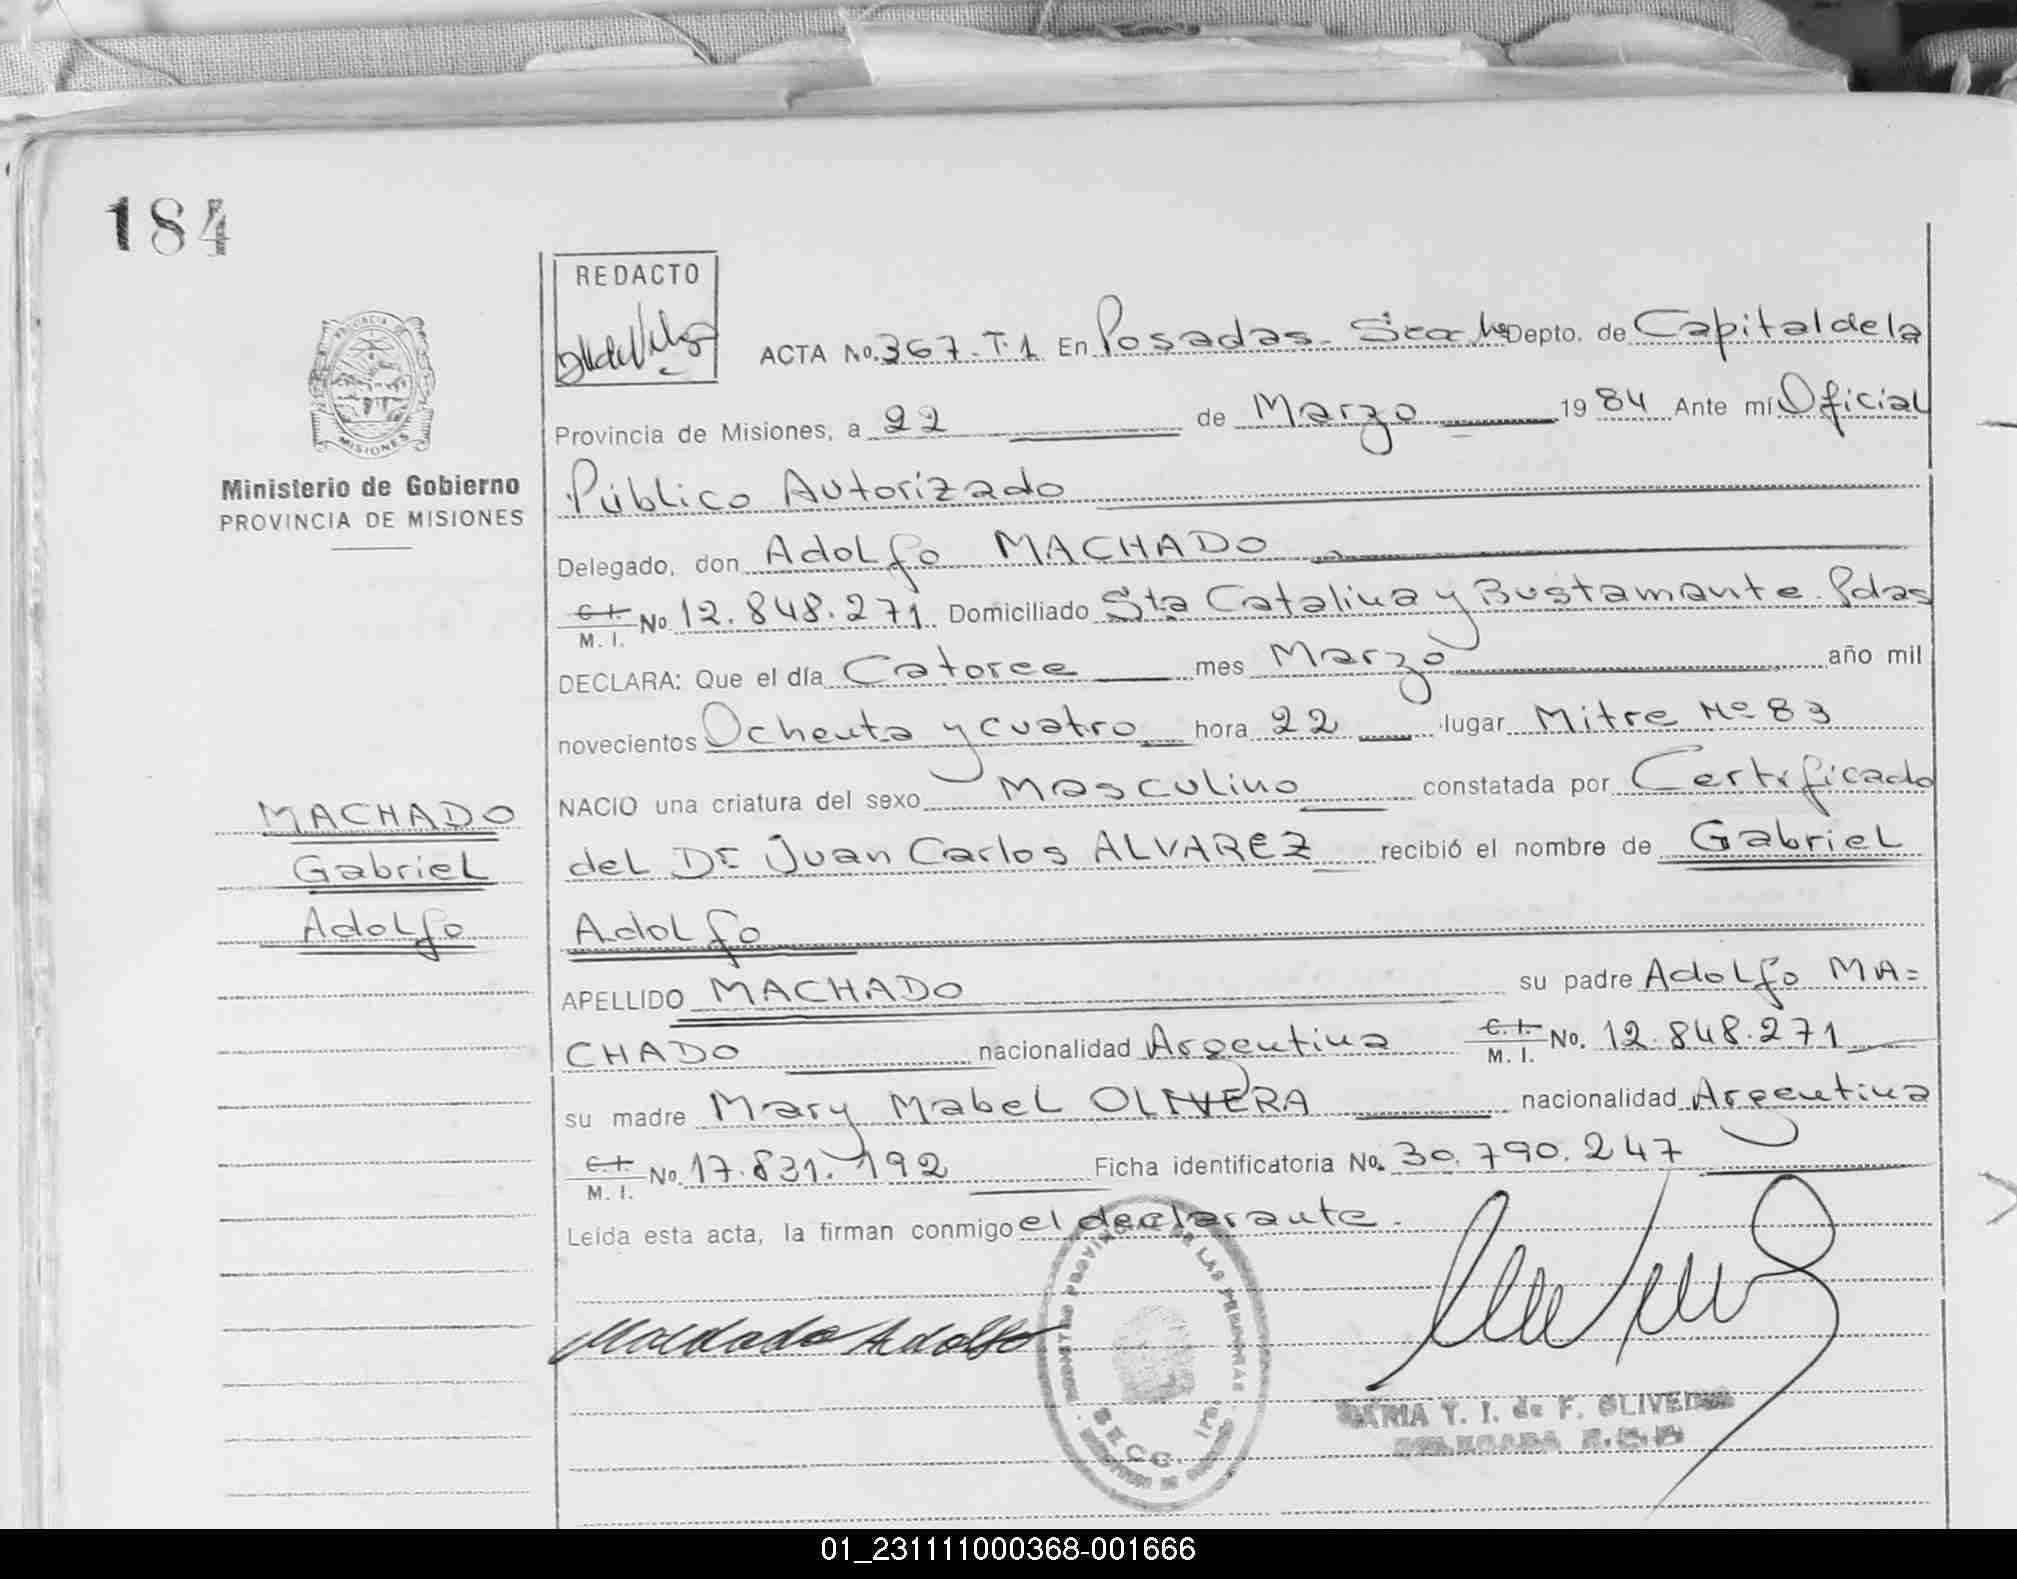 184
REDACTO
ACTA No. 367. T. 1 En Posadas - Depto. de Capital de la
PROVINCIA
MISIONES
Provincia de Misiones, a 22 de Marzo 19 84 Ante mí Oficial
Ministerio de Gobierno
PROVINCIA DE MISIONES
Público Autorizado
Delegado, don Adolfo MACHADO
C. I. M. I. No. 12.848.271 Domiciliado Sta Catalina y Bustamante. Pdas
DECLARA: Que el día Catorce mes Marzo año mil
novecientos Ochenta y cuatro hora 22 lugar Mitre Nº 83
NACIO una criatura del sexo Masculino constatada por Certificado
MACHADO
Gabriel
Adolfo
del Dr Juan Carlos ALVAREZ recibió el nombre de Gabriel
Adolfo
APELLIDO MACHADO su padre Adolfo MA=
CHADO nacionalidad Argentina C. I. M. I. No. 12.848.271
su madre Mary Mabel OLIVERA nacionalidad Argentina
C. I. M. I. No. 17.831.192 Ficha identificatoria No. 30.790.247
Leída esta acta, la firman conmigo el declarante.
Machado Adolfo
DE LAS PERSONAS
SECC. 1ra.
MARIA T. I. de F. OLIVEIRA
DELEGADA
01_231111000368-001666